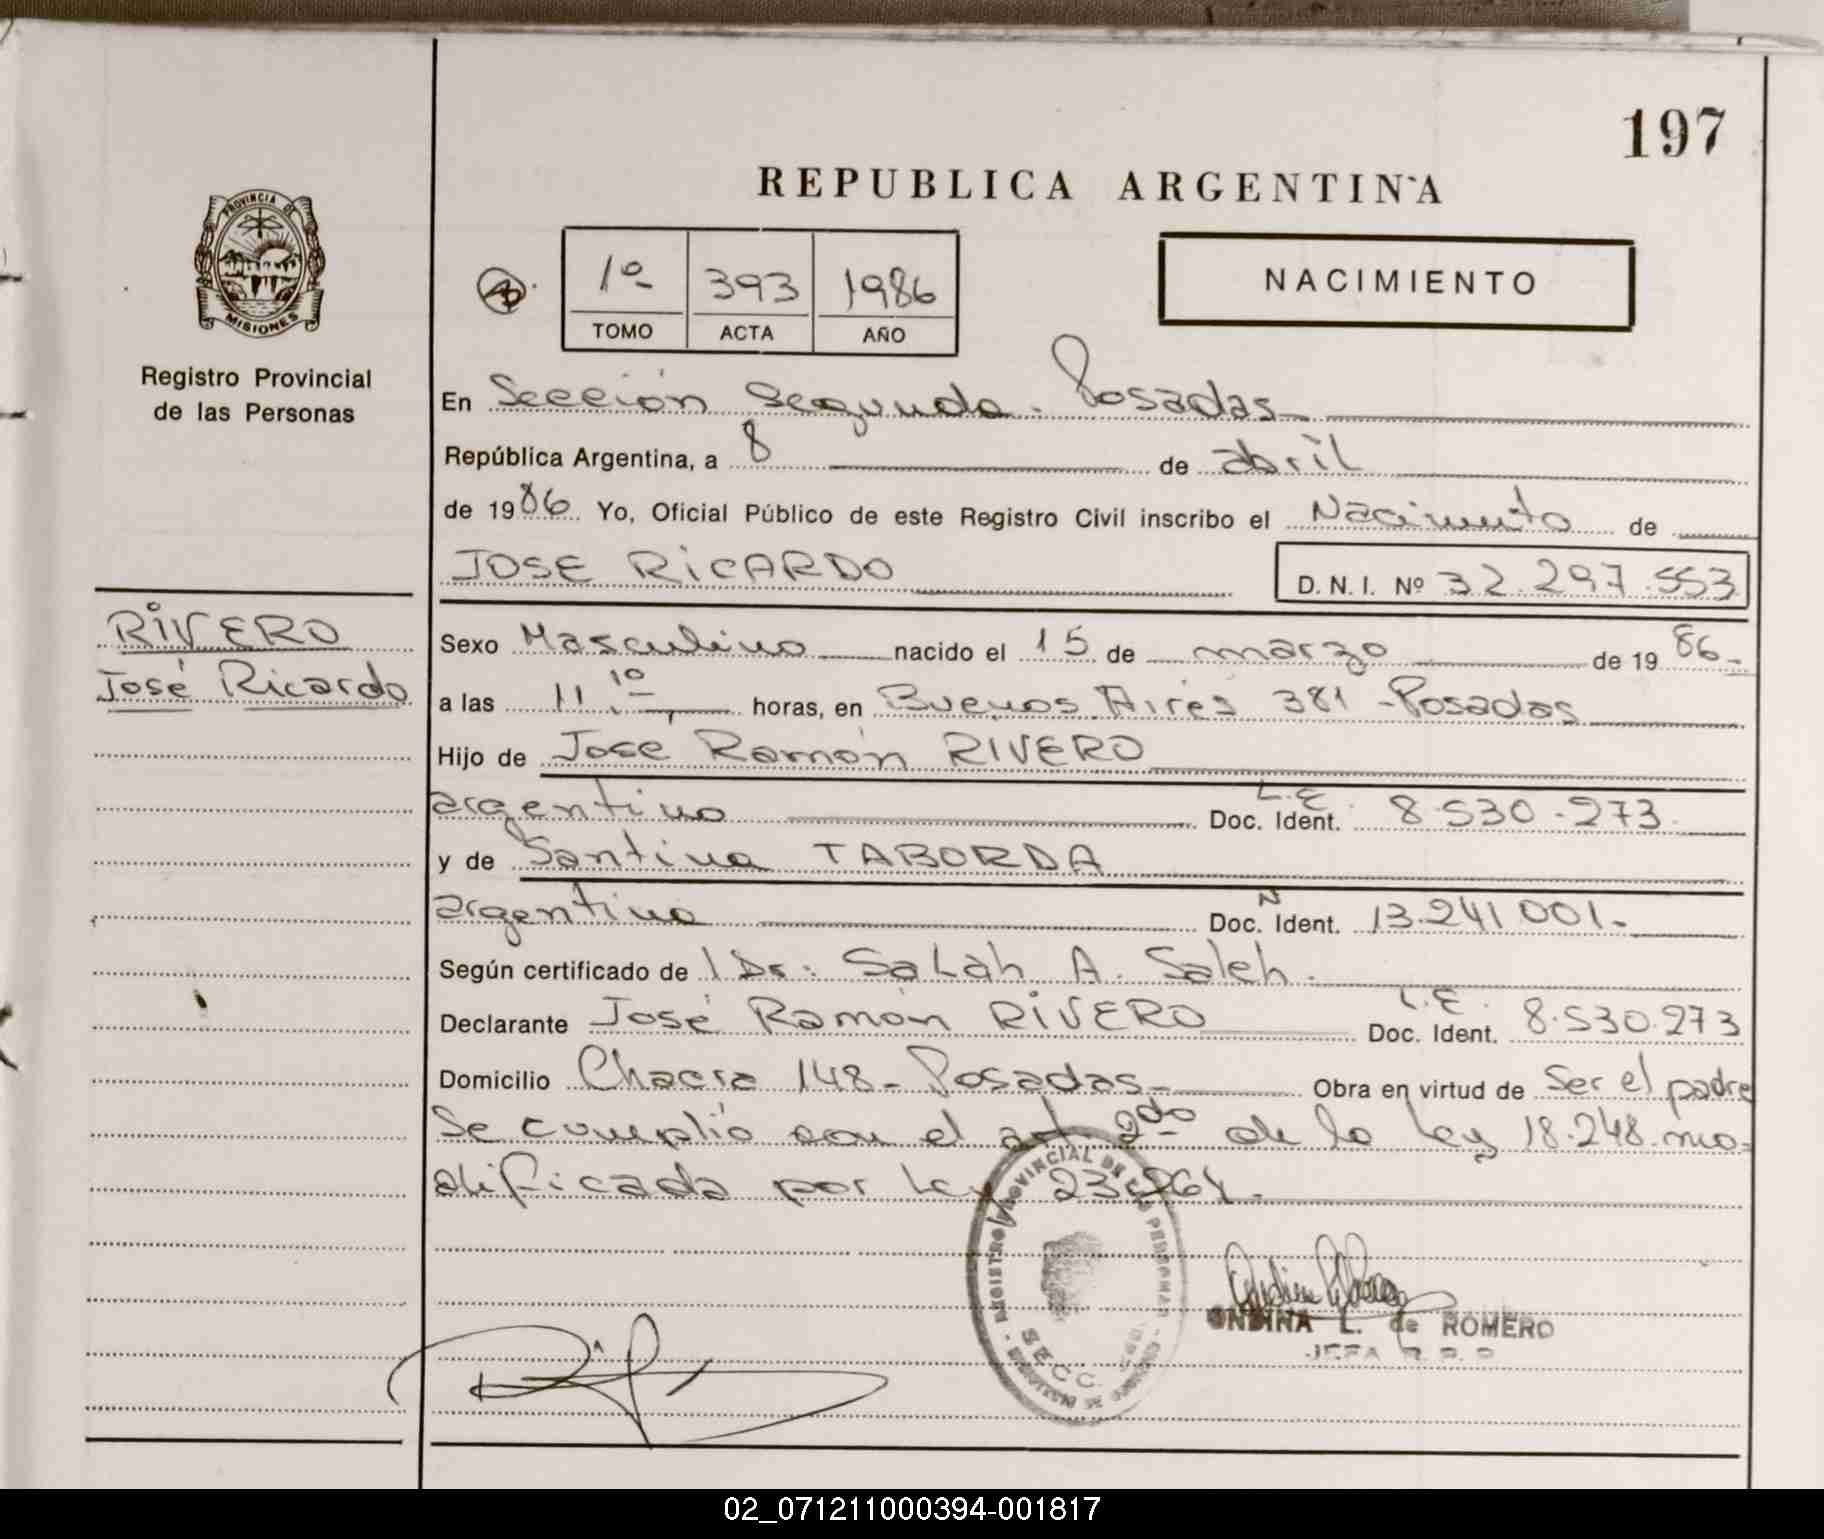 197
REPUBLICA ARGENTINA
PROVINCIA DE
MISIONES
Registro Provincial
de las Personas
1º 393 1986
TOMO ACTA AÑO
NACIMIENTO
En Sección Segunda. Posadas
República Argentina, a 8 de abril
de 1986. Yo, Oficial Público de este Registro Civil inscribo el Nacimiento de
JOSE RICARDO D. N. I. Nº 32.297.553
RIVERO
José Ricardo
Sexo Masculino nacido el 15 de marzo de 1986
a las 11.10 horas, en Buenos Aires 381 - Posadas
Hijo de Jose Ramón RIVERO
argentino Doc. Ident. L.E. 8.530.273
y de Santina TABORDA
argentina Doc. Ident. 13.241.001.
Según certificado de 1 Dr. Salah A. Saleh.
Declarante José Ramón RIVERO Doc. Ident. L.E. 8.530.273
Domicilio Chacra 148 - Posadas Obra en virtud de Ser el padre
Se cumplió con el art. 2do de la Ley 18.248 mo-
dificada por Ley 23.264.
REGISTRO PROVINCIAL DE LAS PERSONAS
SECC.
ONDINA L. de ROMERO
JEFA R. P. P.
02_071211000394-001817